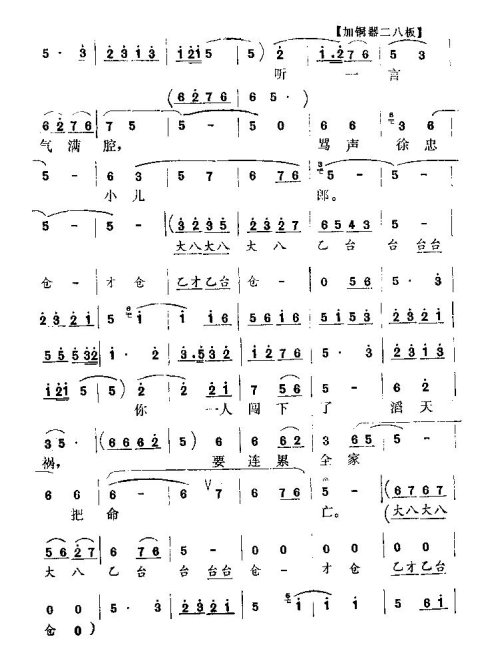 【加铜器二八板】
5· 3 | 2 3 2 1 | i 2i 5 | 5) 2 | i .2 7 6 | 5 -
听 一 言
(6 2 7 6 | 6 5·)
6 2 7 6 | 7 5 | 5 - | 5 0 | 6 6 | 3 6
气 满 腔， 骂 声 徐 忠
5 - | 6 3 | 5 7 | 6 7 6 | 5 - | 5 -
小 儿 郎。
5 - | 5 - | (3 2 3 5 | 2 3 2 7 | 6 5 4 3 | 5 5
大八大八 大 八 乙 台 台 台台
仓 - | 才 仓 | 乙才乙台 | 仓 - | 0 5 6 | 5· 3
2 3 2 1 | 5 i | i i 6 | 5 6 i 6 | 5 i 3 5 | 2 3 2 1
5 5 5 3 2 | i· 2 | 3 .5 3 2 | 1 2 7 6 | 5· 3 | 2 3 1 3
i 2 i 5 | 5) 2 | 2 2 i | 7 5 6 | 5 - | 6 2
你 一 人 闯 下 了 滔 天
3 5· | (6 6 6 2 | 5) 6 | 6 6 2 | 3 6 5 | 5 -
祸， 要 连 累 全 家
6 6 | 6 - | 6 - | 6 7 6 | 5 - | (6 7 6 7
把 命 亡。 (大八大八
5 6 2 7 | 6 7 6 | 5 - | 0 0 | 0 0 | 0 0
大 八 乙 台 台 台台 仓 - 才 仓 乙才乙台
0 0 | 5· 3 | 2 3 2 1 | 5 i | i i | 5 6 i
仓 0 )